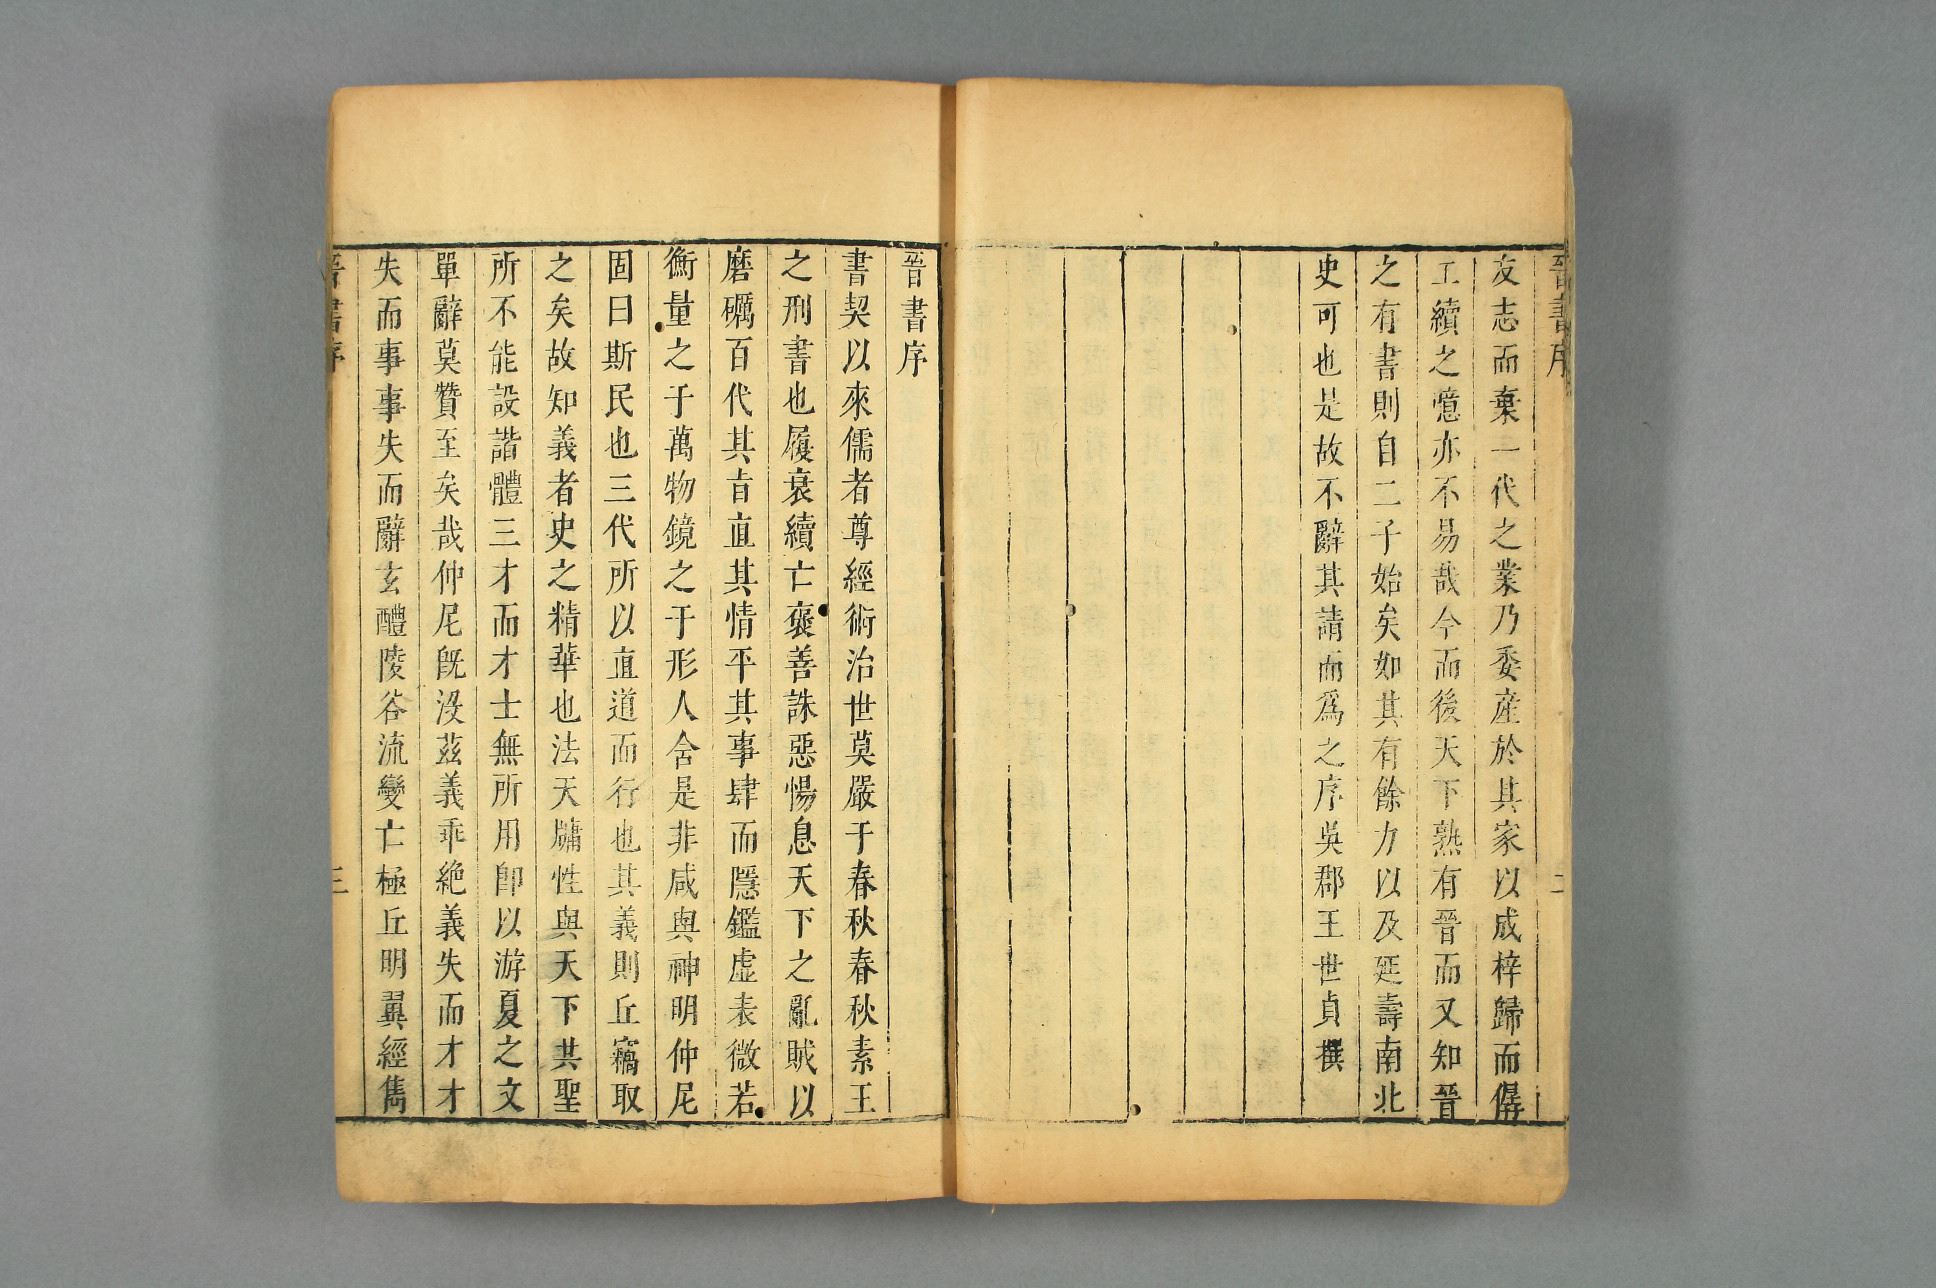 晉書序
二
友志而棄一代之業乃委產於其家以成梓歸而僝
工續之噫亦不易哉今而後天下熟有晉而又知晉
之有書則自二子始矣如其有餘力以及延壽南北
史可也是故不辭其請而爲之序吳郡王世貞撰
晉書序
書契以來儒者尊經術治世莫嚴于春秋春秋素王
之刑書也履衰續亡褒善誅惡惕息天下之亂賊以
磨礪百代其旨直其情平其事肆而隱鑑虛表微若
衡量之于萬物鏡之于形人舍是非咸與神明仲尼
固曰斯民也三代所以直道而行也其義則丘竊取
之矣故知義者史之精華也法天牗性與天下共聖
所不能設諧體三才而才士無所用卽以游夏之文
單辭莫贊至矣哉仲尼旣沒茲義乖絶義失而才才
失而事事失而辭玄醴陵谷流變亡極丘明翼經雋
晉書序
三